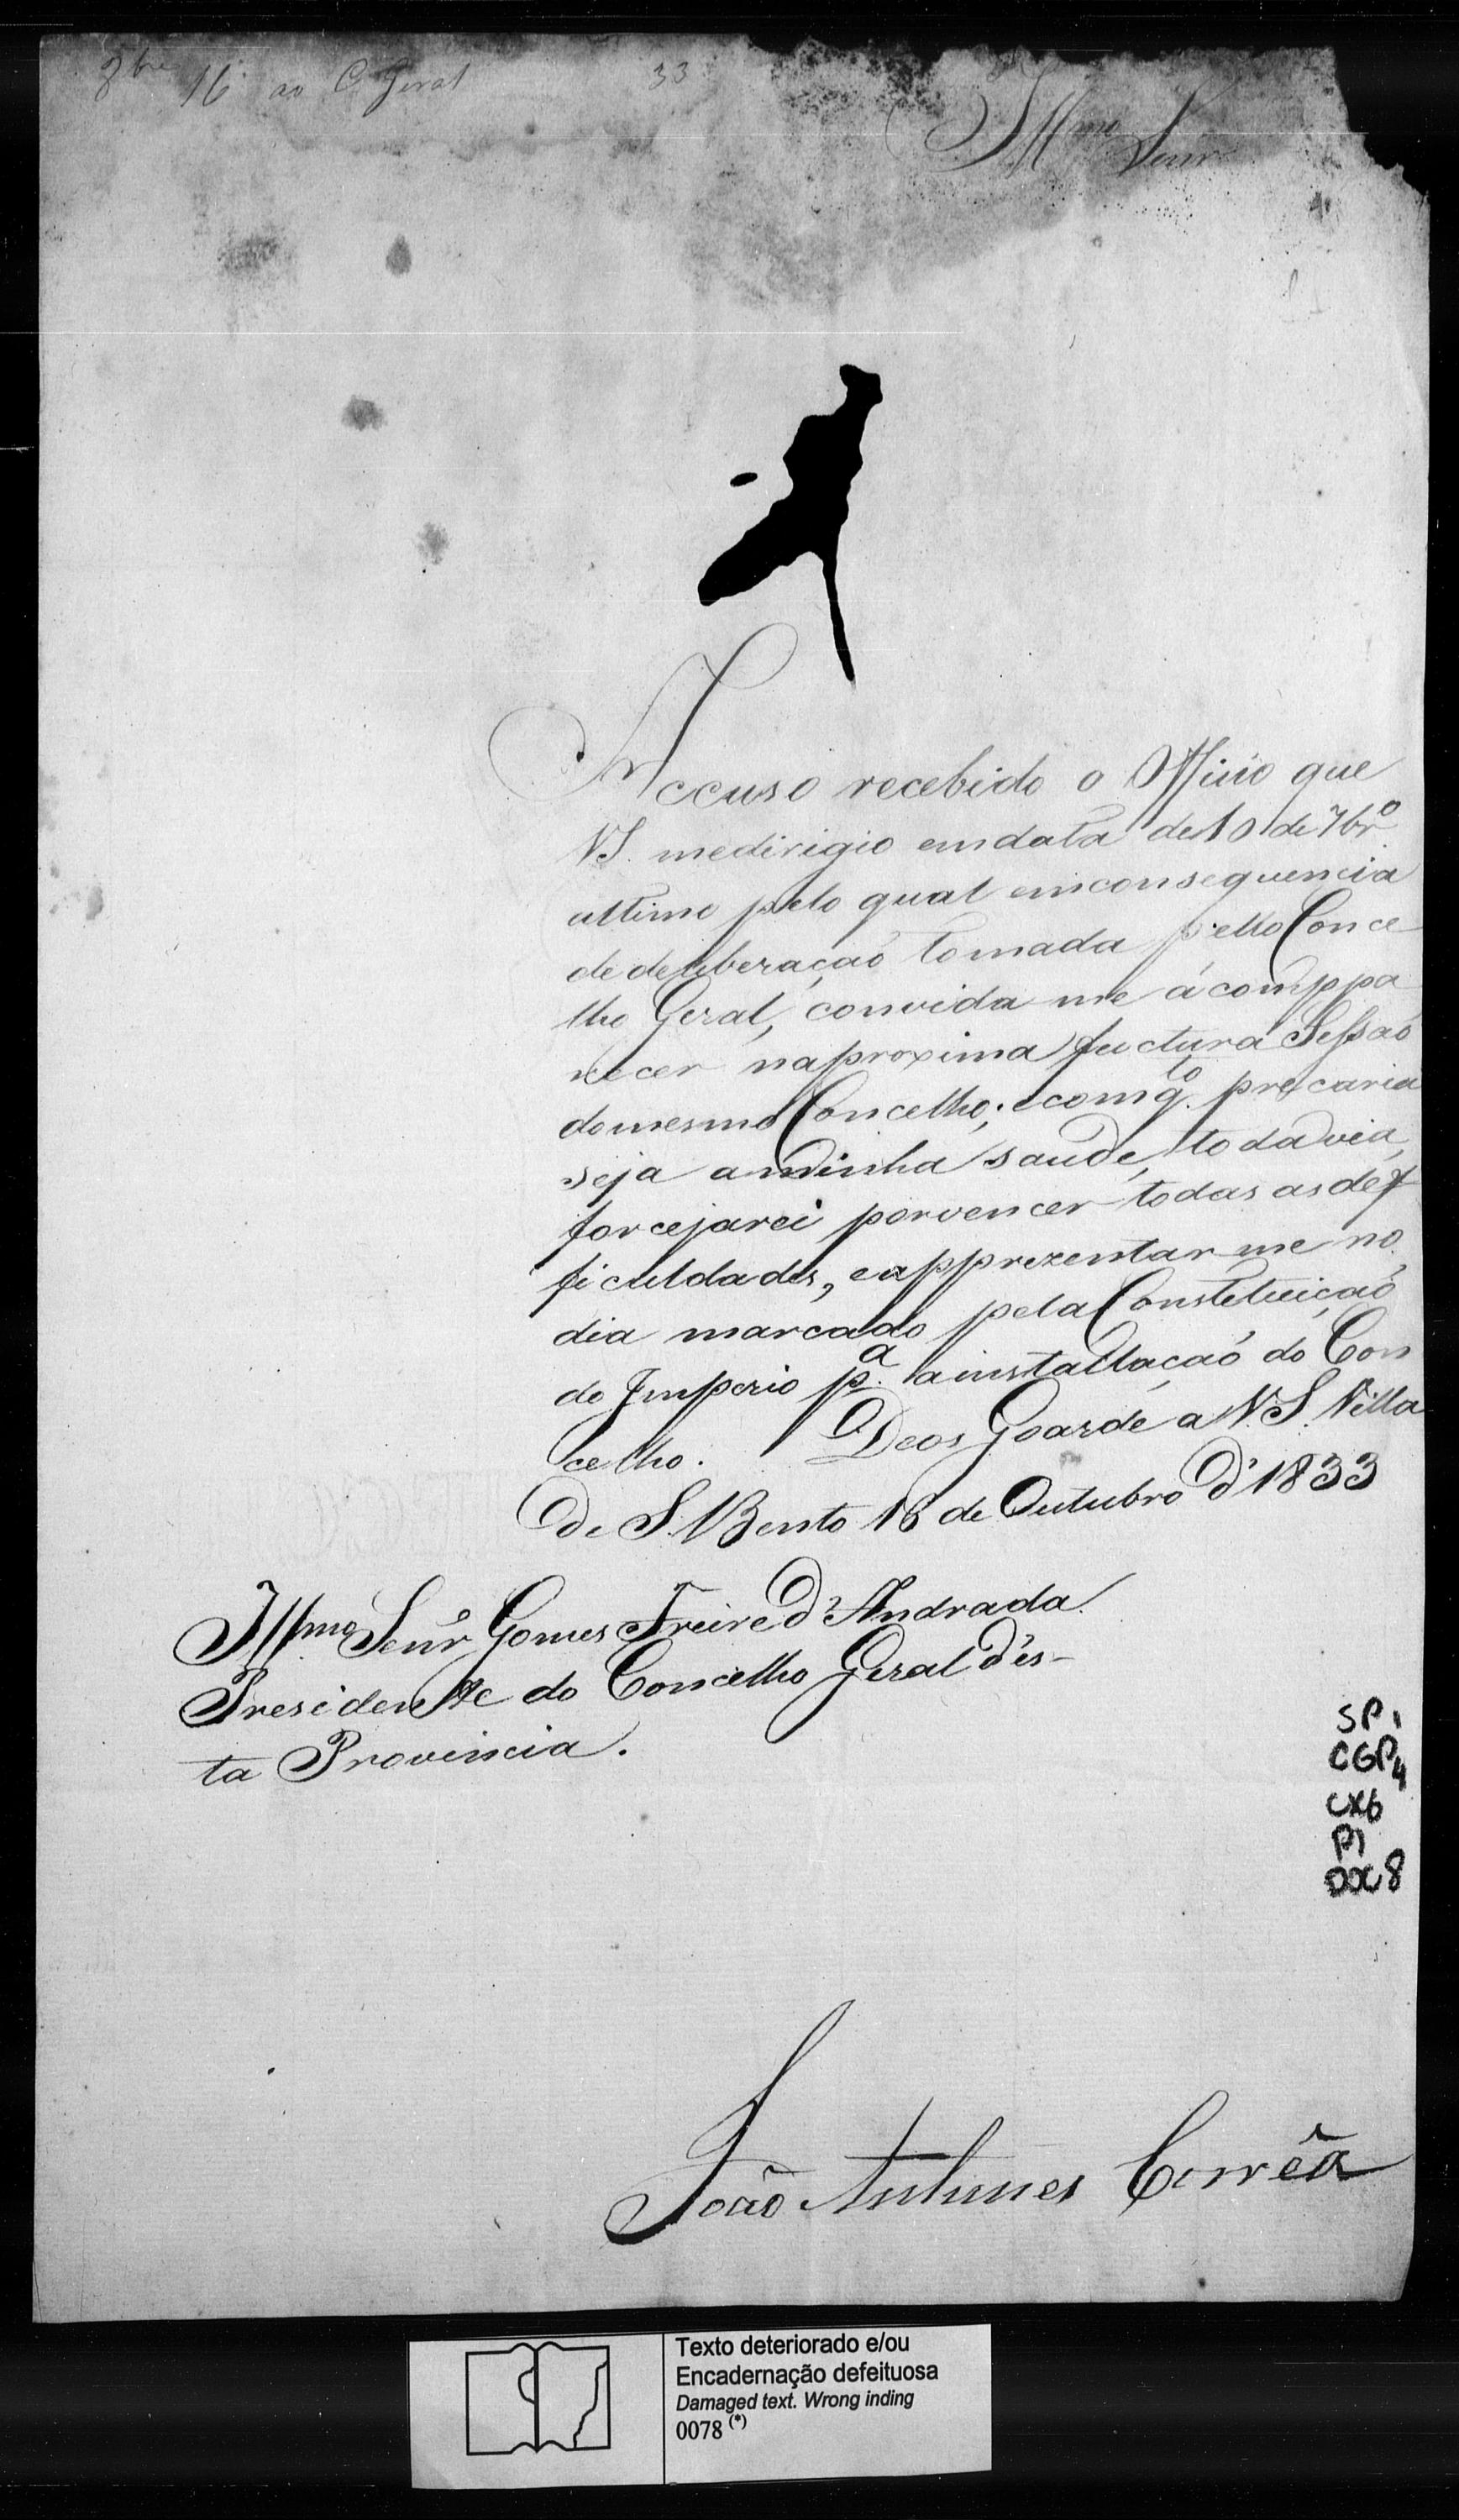 8bro 16 ao C. Geral 33
Illmo Senr
Accuso recebido o Officio que
V.S. medirigio emdata de 10 de 7bro
ultimo pelo qual emconsequencia
de deliberaçaõ tomada pello Conce
lho Geral, convida me ácomppa
recer naproxima fuctura Sessaõ
domesmo Concelho; ecomqto precaria
seja aminha saude, todavia,
forcejarei porvencer todas asdef
ficuldades, eapprezentar me no
dia marcado pela Constetuiçaõ
do Imperio pa ainstallaçaõ do Con
celho. Deos Goarde a V.S. Villa
de S. Bento 16 de Outubro d'1833
Illmo Senr Gomes Freire d'Andrada
Presidente do Concelho Geral d'es-
ta Provincia.
SP1
CGP4
CX6
P1
DOC8
João Antunes Corrêa
Texto deteriorado e/ou
Encadernação defeituosa
Damaged text. Wrong inding
0078 (*)